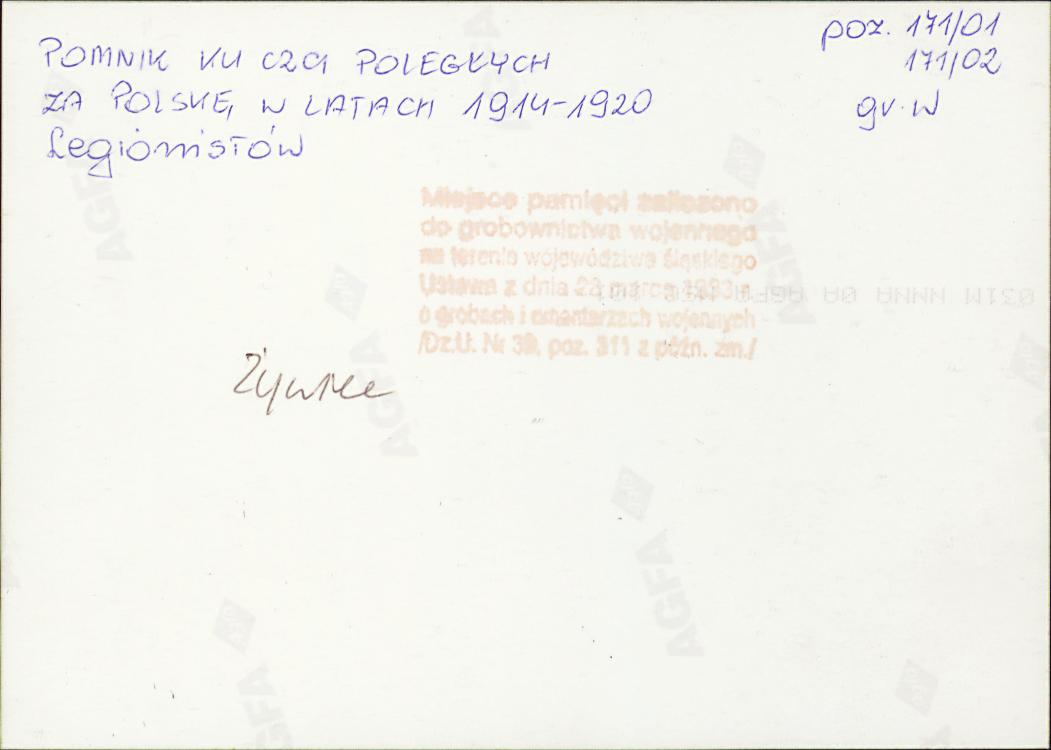 POMNIK KU CZCI POLEGŁYCH
ZA POLSKĘ W LATACH 1914-1920
Legionistów
poz. 171/01
171/02
gr. w
Miejsce pamięci zaliczono
do grobownictwa wojennego
na terenie województwa śląskiego
Ustawa z dnia 28 marca 1933 r.
o grobach i cmentarzach wojennych
/Dz.U. Nr 39, poz. 311 z późn. zm./
Żywiec
AGFA
AGFA
AGFA
AGFA
AGFA